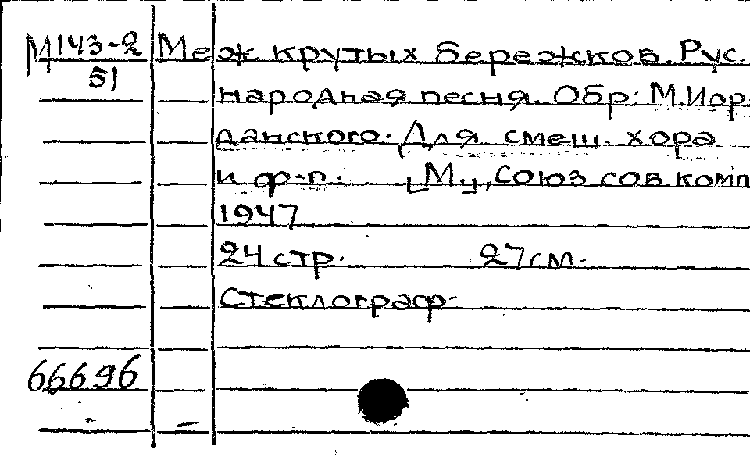 М143-2 Меж крутых бережков. Рус.
51
народная песня. Обр: М.Иор-
данского. Для смеш. хора
и ф-п. [М.], Союз сов. комп
1947
24 стр. 27 см.
Стеклограф.
66696